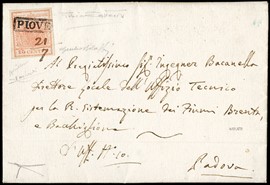 PIOVE
21
7
Al Pregiatissimo Sig. Ingegnere Bacanello
Direttore locale dell'Uffizio Tecnico
per la Sistemazione dei Fiumi Brenta,
e Bacchiglione
D'Uff.
Padova